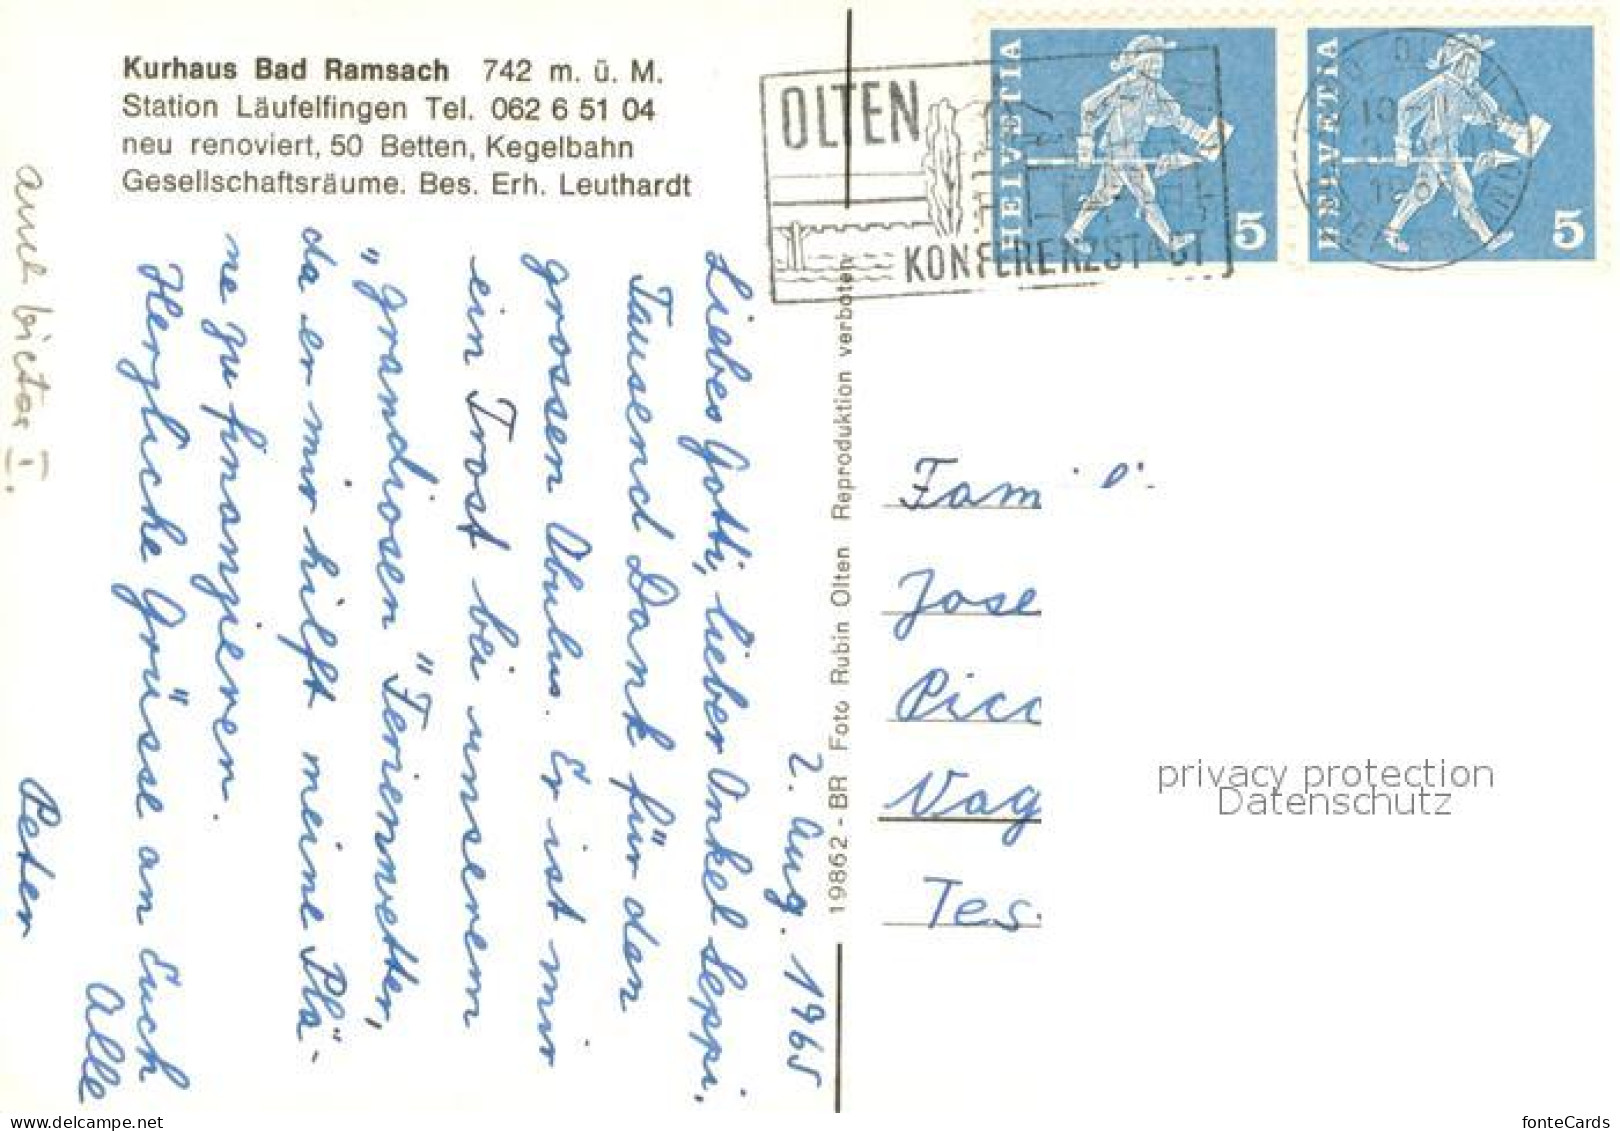 Kurhaus Bad Ramsach 742 m. ü. M.
Station Läufelfingen Tel. 062 6 51 04
neu renoviert, 50 Betten, Kegelbahn
Gesellschaftsräume. Bes. Erh. Leuthardt
OLTEN
KONFERENZSTADT
HELVETIA 5
HELVETIA 5
2. Aug. 1965
Liebes Gotti, lieber Onkel Seppi.
Tausend Dank für den
grossen Obulus. Er ist mir
ein Trost bei unserem
"grandiosen" Ferienwetter,
da er mir hilft meine Plä-
ne zu finanzieren.
Herzliche Grüsse an Euch
Alle
Peter
auch
19862-BR Foto Rubin Olten Reproduktion verboten
Fam
Jose
Picc
Nag
Tes
privacy protection
Datenschutz
www.delcampe.net
fonteCards